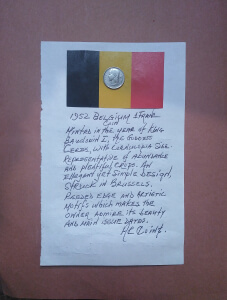 1952 Belgium 1 Franc
Coin
Minted in the year of King
Baudouin I, the Goddess
Ceres, with Cornucopia Side.
Representative of abundance
and plentiful crops. An
elegant yet simple design,
struck in Brussels.
Reeded edge and artistic
motifs which makes the
owner admire its beauty
and